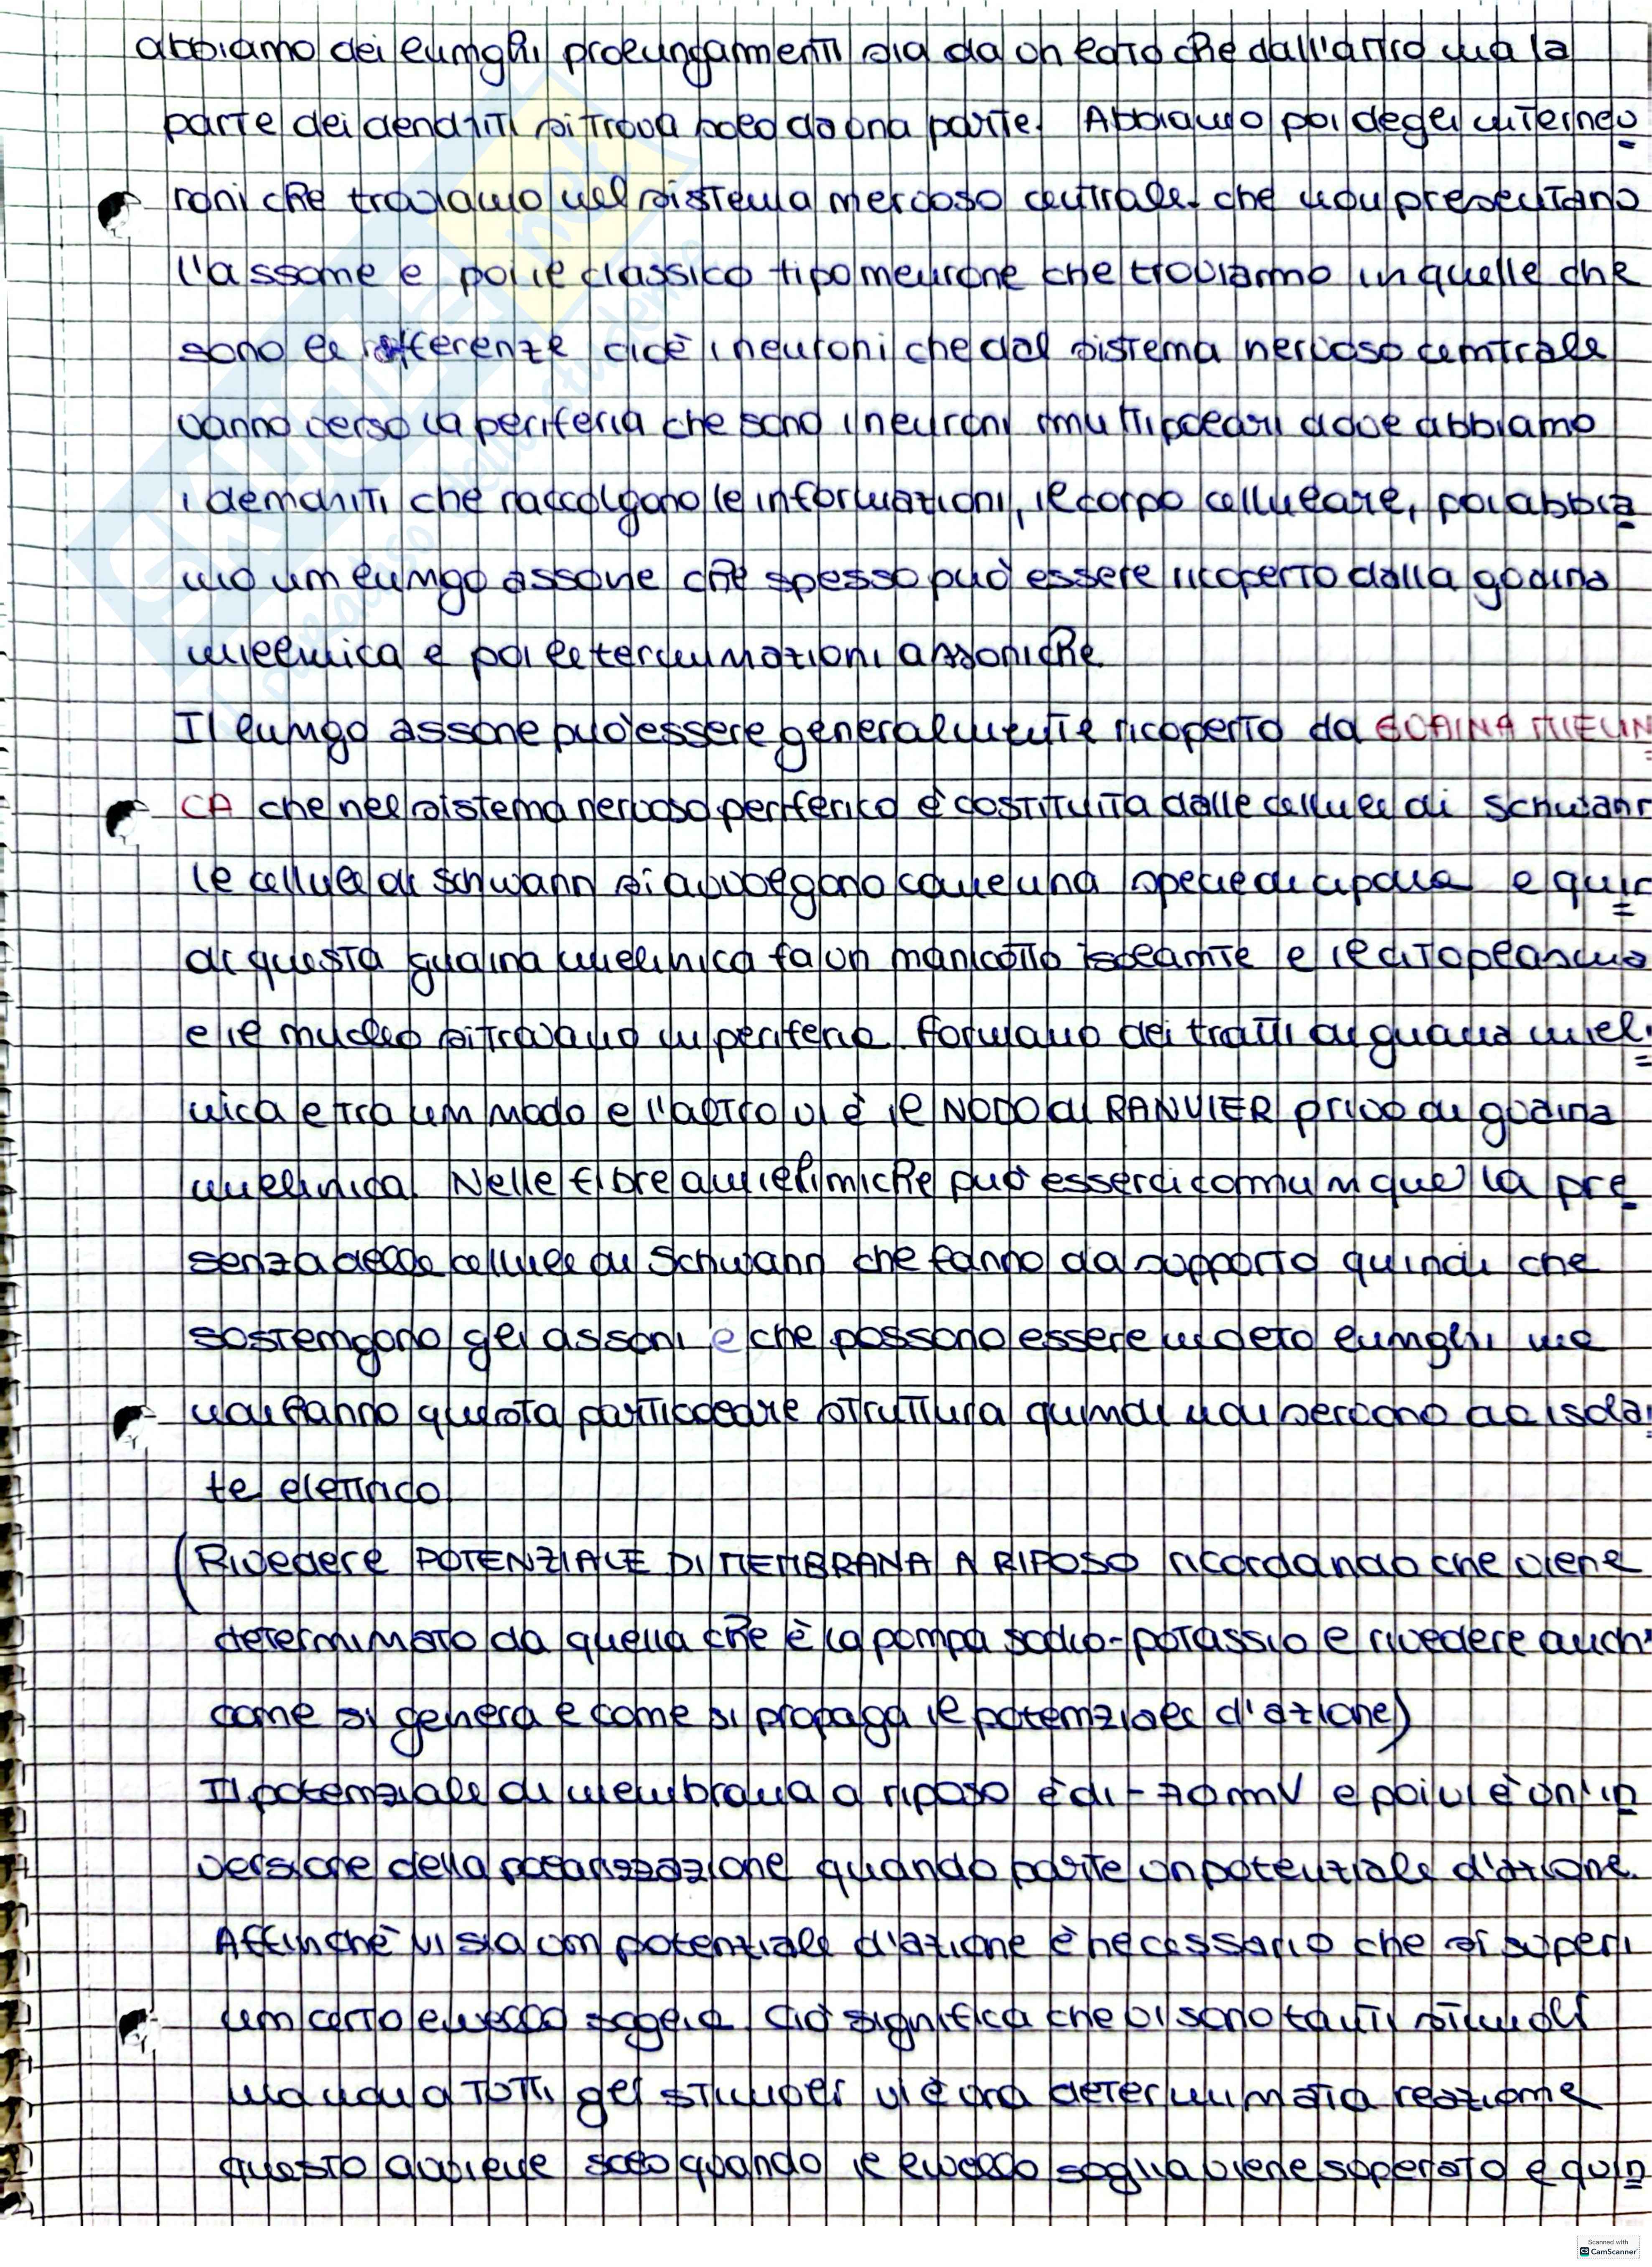 abbiamo dei lunghi prolungamenti sia da un lato che dall'altro ma la
parte dei dendriti si trova solo da una parte. Abbiamo poi degli interneu
roni che troviamo nel sistema nervoso centrale che non presentano
l'assone e poi il classico tipo neurone che troviamo in quelle che
sono le efferenze cioè i neuroni che dal sistema nervoso centrale
vanno verso la periferia che sono i neuroni multipolari dove abbiamo
i dendriti che raccolgono le informazioni, il corpo cellulare, poi abbia
mo un lungo assone che spesso può essere ricoperto dalla guaina
mielinica e poi le terminazioni assoniche.
Il lungo assone può essere generalmente ricoperto da GUAINA MIELINI
CA che nel sistema nervoso periferico è costituita dalle cellule di Schwann
le cellule di Schwann si avvolgono come una specie di cipolla e quin
di questa guaina mielinica fa un manicotto isolante e il citoplasma
e il nucleo si trovano in periferia. Formano dei tratti di guaina mieli
nica e tra un nodo e l'altro vi è il NODO di RANVIER privo di guaina
mielinica. Nelle fibre amieliniche può esserci comunque la pre
senza delle cellule di Schwann che fanno da supporto quindi che
sostengono gli assoni e che possono essere molto lunghi ma
non hanno questa particolare struttura quindi non servono da isolan
te elettrico.
(Rivedere POTENZIALE DI MEMBRANA A RIPOSO ricordando che viene
determinato da quella che è la pompa sodio-potassio e rivedere anche
come si genera e come si propaga il potenziale d'azione)
Il potenziale di membrana a riposo è di -70 mV e poi vi è un'in
versione della polarizzazione quando parte un potenziale d'azione.
Affinchè vi sia un potenziale d'azione è necessario che si superi
un certo livello soglia. Ciò significa che vi sono tanti stimoli
ma non a tutti gli stimoli vi è una determinata reazione
questo avviene solo quando il livello soglia viene superato e quin
SKUOLA.net
Scanned with
CamScanner